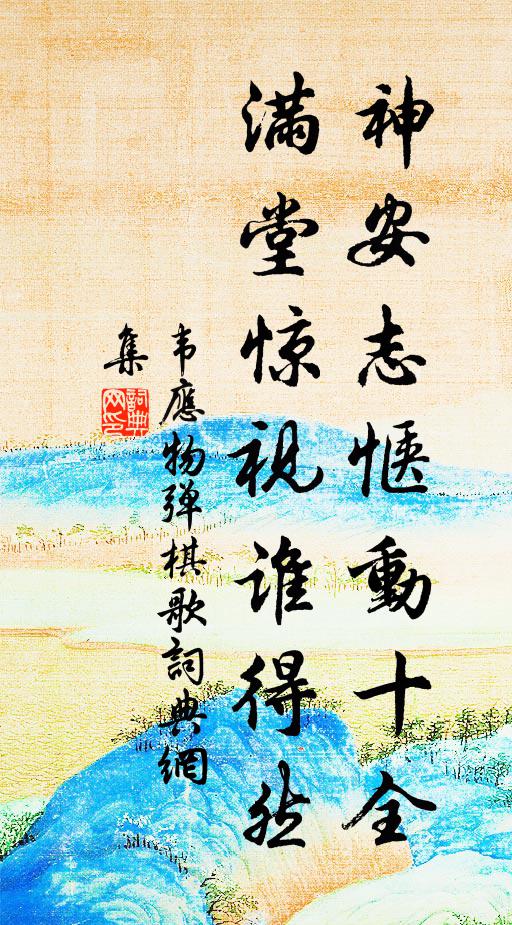 神安志惬動十全
满堂惊视谁得然
韦應物弹棋歌詞典網
集
詞典
网印